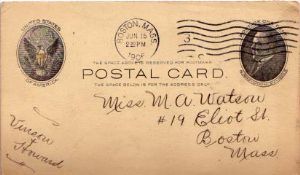 UNITED STATES
OF AMERICA
BOSTON, MASS.
JUN 15
2 30 PM
190
3
THE SPACE ABOVE IS RESERVED FOR POSTMARK.
POSTAL CARD.
THE SPACE BELOW IS FOR THE ADDRESS ONLY.
Miss M. A. Watson
#19 Eliot St.
Boston
Mass.
Vinson
Howard